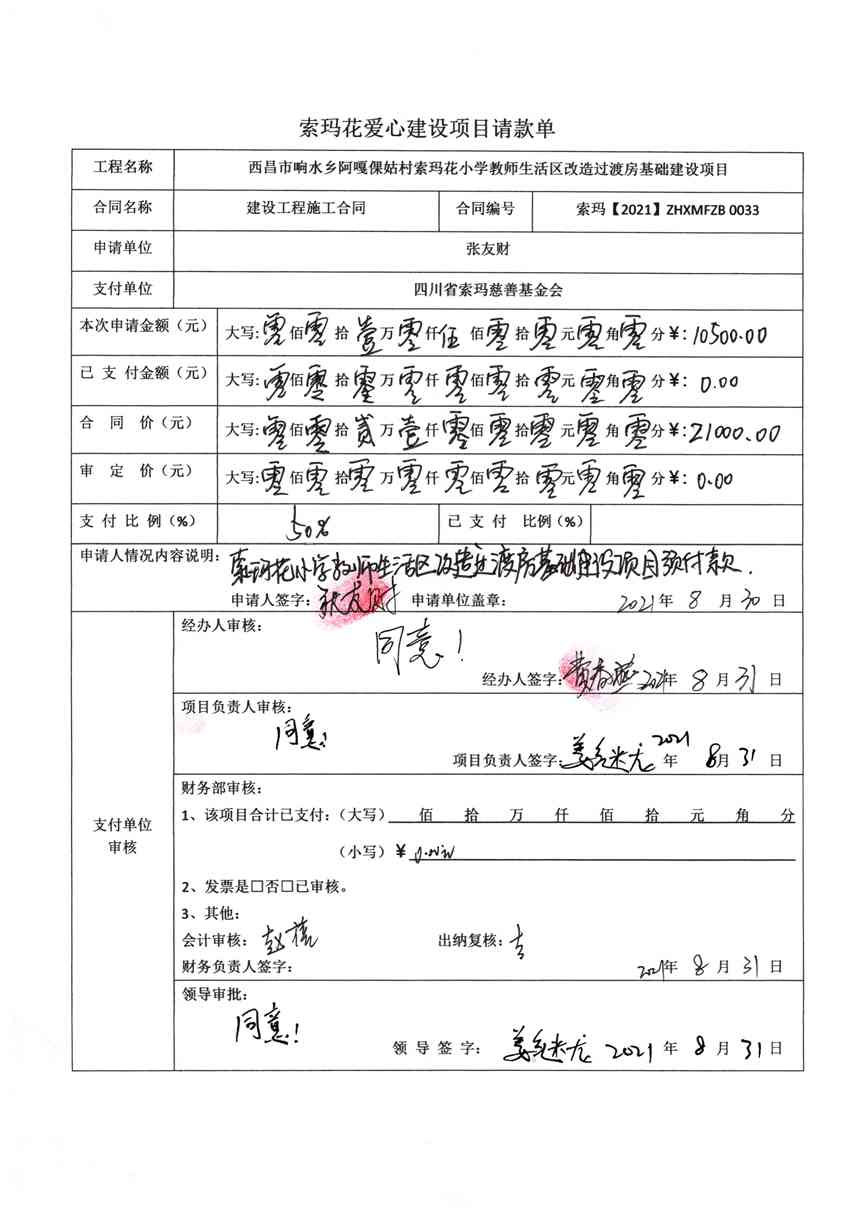 索玛花爱心建设项目请款单
工程名称 西昌市响水乡阿嘎倮姑村索玛花小学教师生活区改造过渡房基础建设项目
合同名称 建设工程施工合同 合同编号 索玛【2021】ZHXMFZB 0033
申请单位 张友财
支付单位 四川省索玛慈善基金会
本次申请金额（元） 大写:零佰零拾壹万零仟伍佰零拾零元零角零分¥: 10500.00
已支付金额（元） 大写:零佰零拾零万零仟零佰零拾零元零角零分¥: 0.00
合同价（元） 大写:零佰零拾贰万壹仟零佰零拾零元零角零分¥:21000.00
审定价（元） 大写:零佰零拾零万零仟零佰零拾零元零角零分¥: 0.00
支付比例（%） 50% 已支付 比例（%）
申请人情况内容说明: 索玛花小学教师生活区改造过渡房基础建设项目预付款.
申请人签字: 张友财 申请单位盖章: 2021年 8 月 30 日
经办人审核:
同意!
经办人签字: 2021年 8 月 31 日
项目负责人审核:
同意!
项目负责人签字: 2021年 8月 31 日
支付单位审核
财务部审核:
1、该项目合计已支付:（大写） 佰 拾 万 仟 佰 拾 元 角 分
（小写）¥
2、发票是□否□已审核。
3、其他:
会计审核: 出纳复核:
财务负责人签字: 2021年 8 月 31 日
领导审批:
同意!
领导签字: 2021 年 8 月 31 日